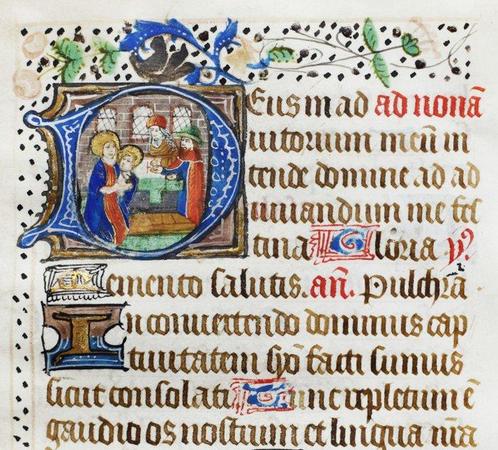 Deus in ad ad nonã
iutorium meũ in
tende domine ad ad
iuuandum me fes
tina Gloria v.
Memento salutis. añ. Pulchra
In conuertendo dominus cap
tiuitatem syõ facti sumus
sicut consolati Tunc repletum ẽ
gaudio os nostrum et lingua nr̃a